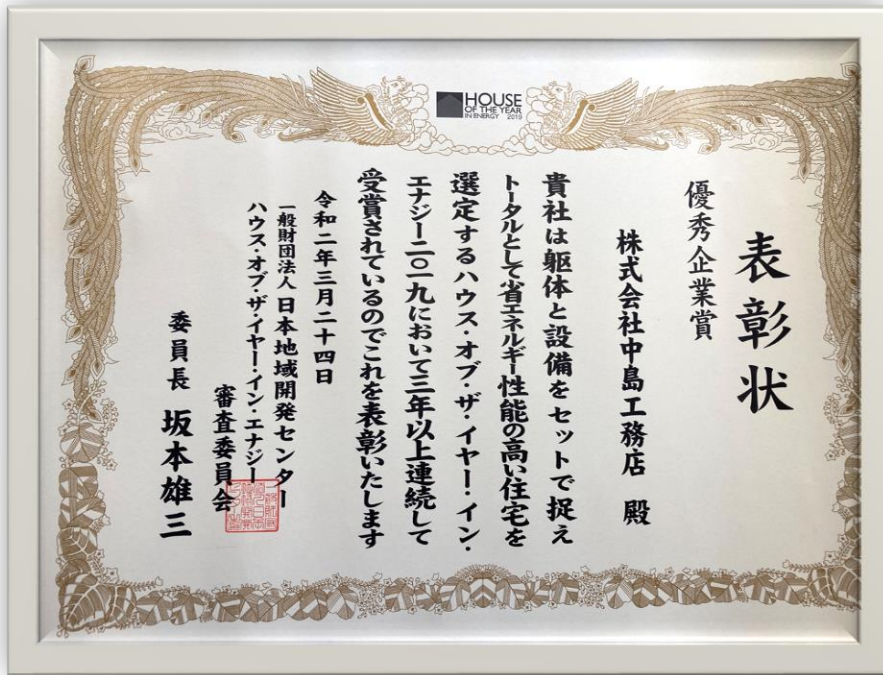 HOUSE
OF THE YEAR
IN ENERGY 2019
表彰状
優秀企業賞
株式会社中島工務店 殿
貴社は躯体と設備をセットで捉え
トータルとして省エネルギー性能の高い住宅を
選定するハウス・オブ・ザ・イヤー・イン・
エナジー二〇一九において三年以上連続して
受賞されているのでこれを表彰いたします
令和二年三月二十四日
一般財団法人 日本地域開発センター
ハウス・オブ・ザ・イヤー・イン・エナジー
審査委員会
委員長 坂本雄三